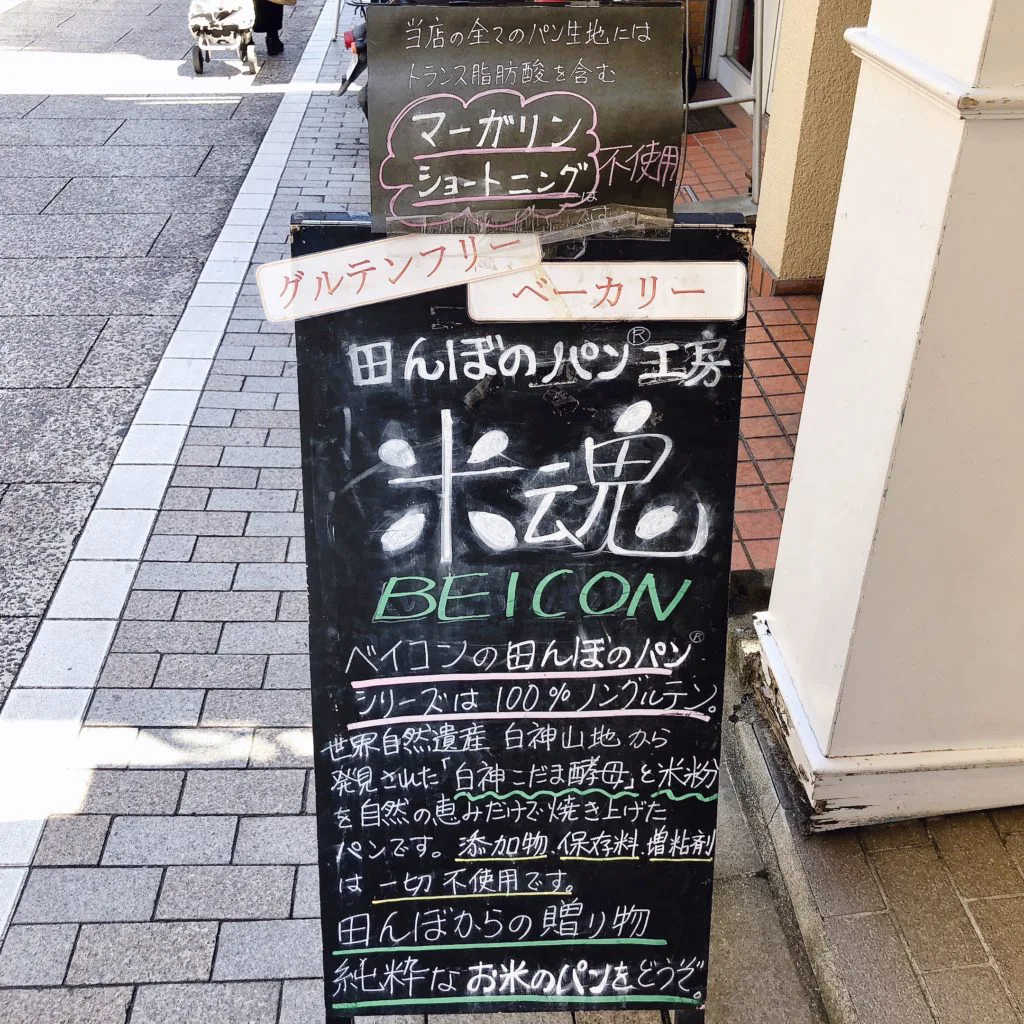 当店の全てのパン生地には
トランス脂肪酸を含む
マーガリン
ショートニング
は
不使用
です
グルテンフリー
ベーカリー
田んぼのパン®工房
米魂
BEICON
ベイコンの田んぼのパン®
シリーズは100%ノングルテン。
世界自然遺産 白神山地から
発見された「白神こだま酵母」と米粉
を自然の恵みだけで焼き上げた
パンです。添加物、保存料、増粘剤
は一切不使用です。
田んぼからの贈り物
純粋なお米のパンをどうぞ。